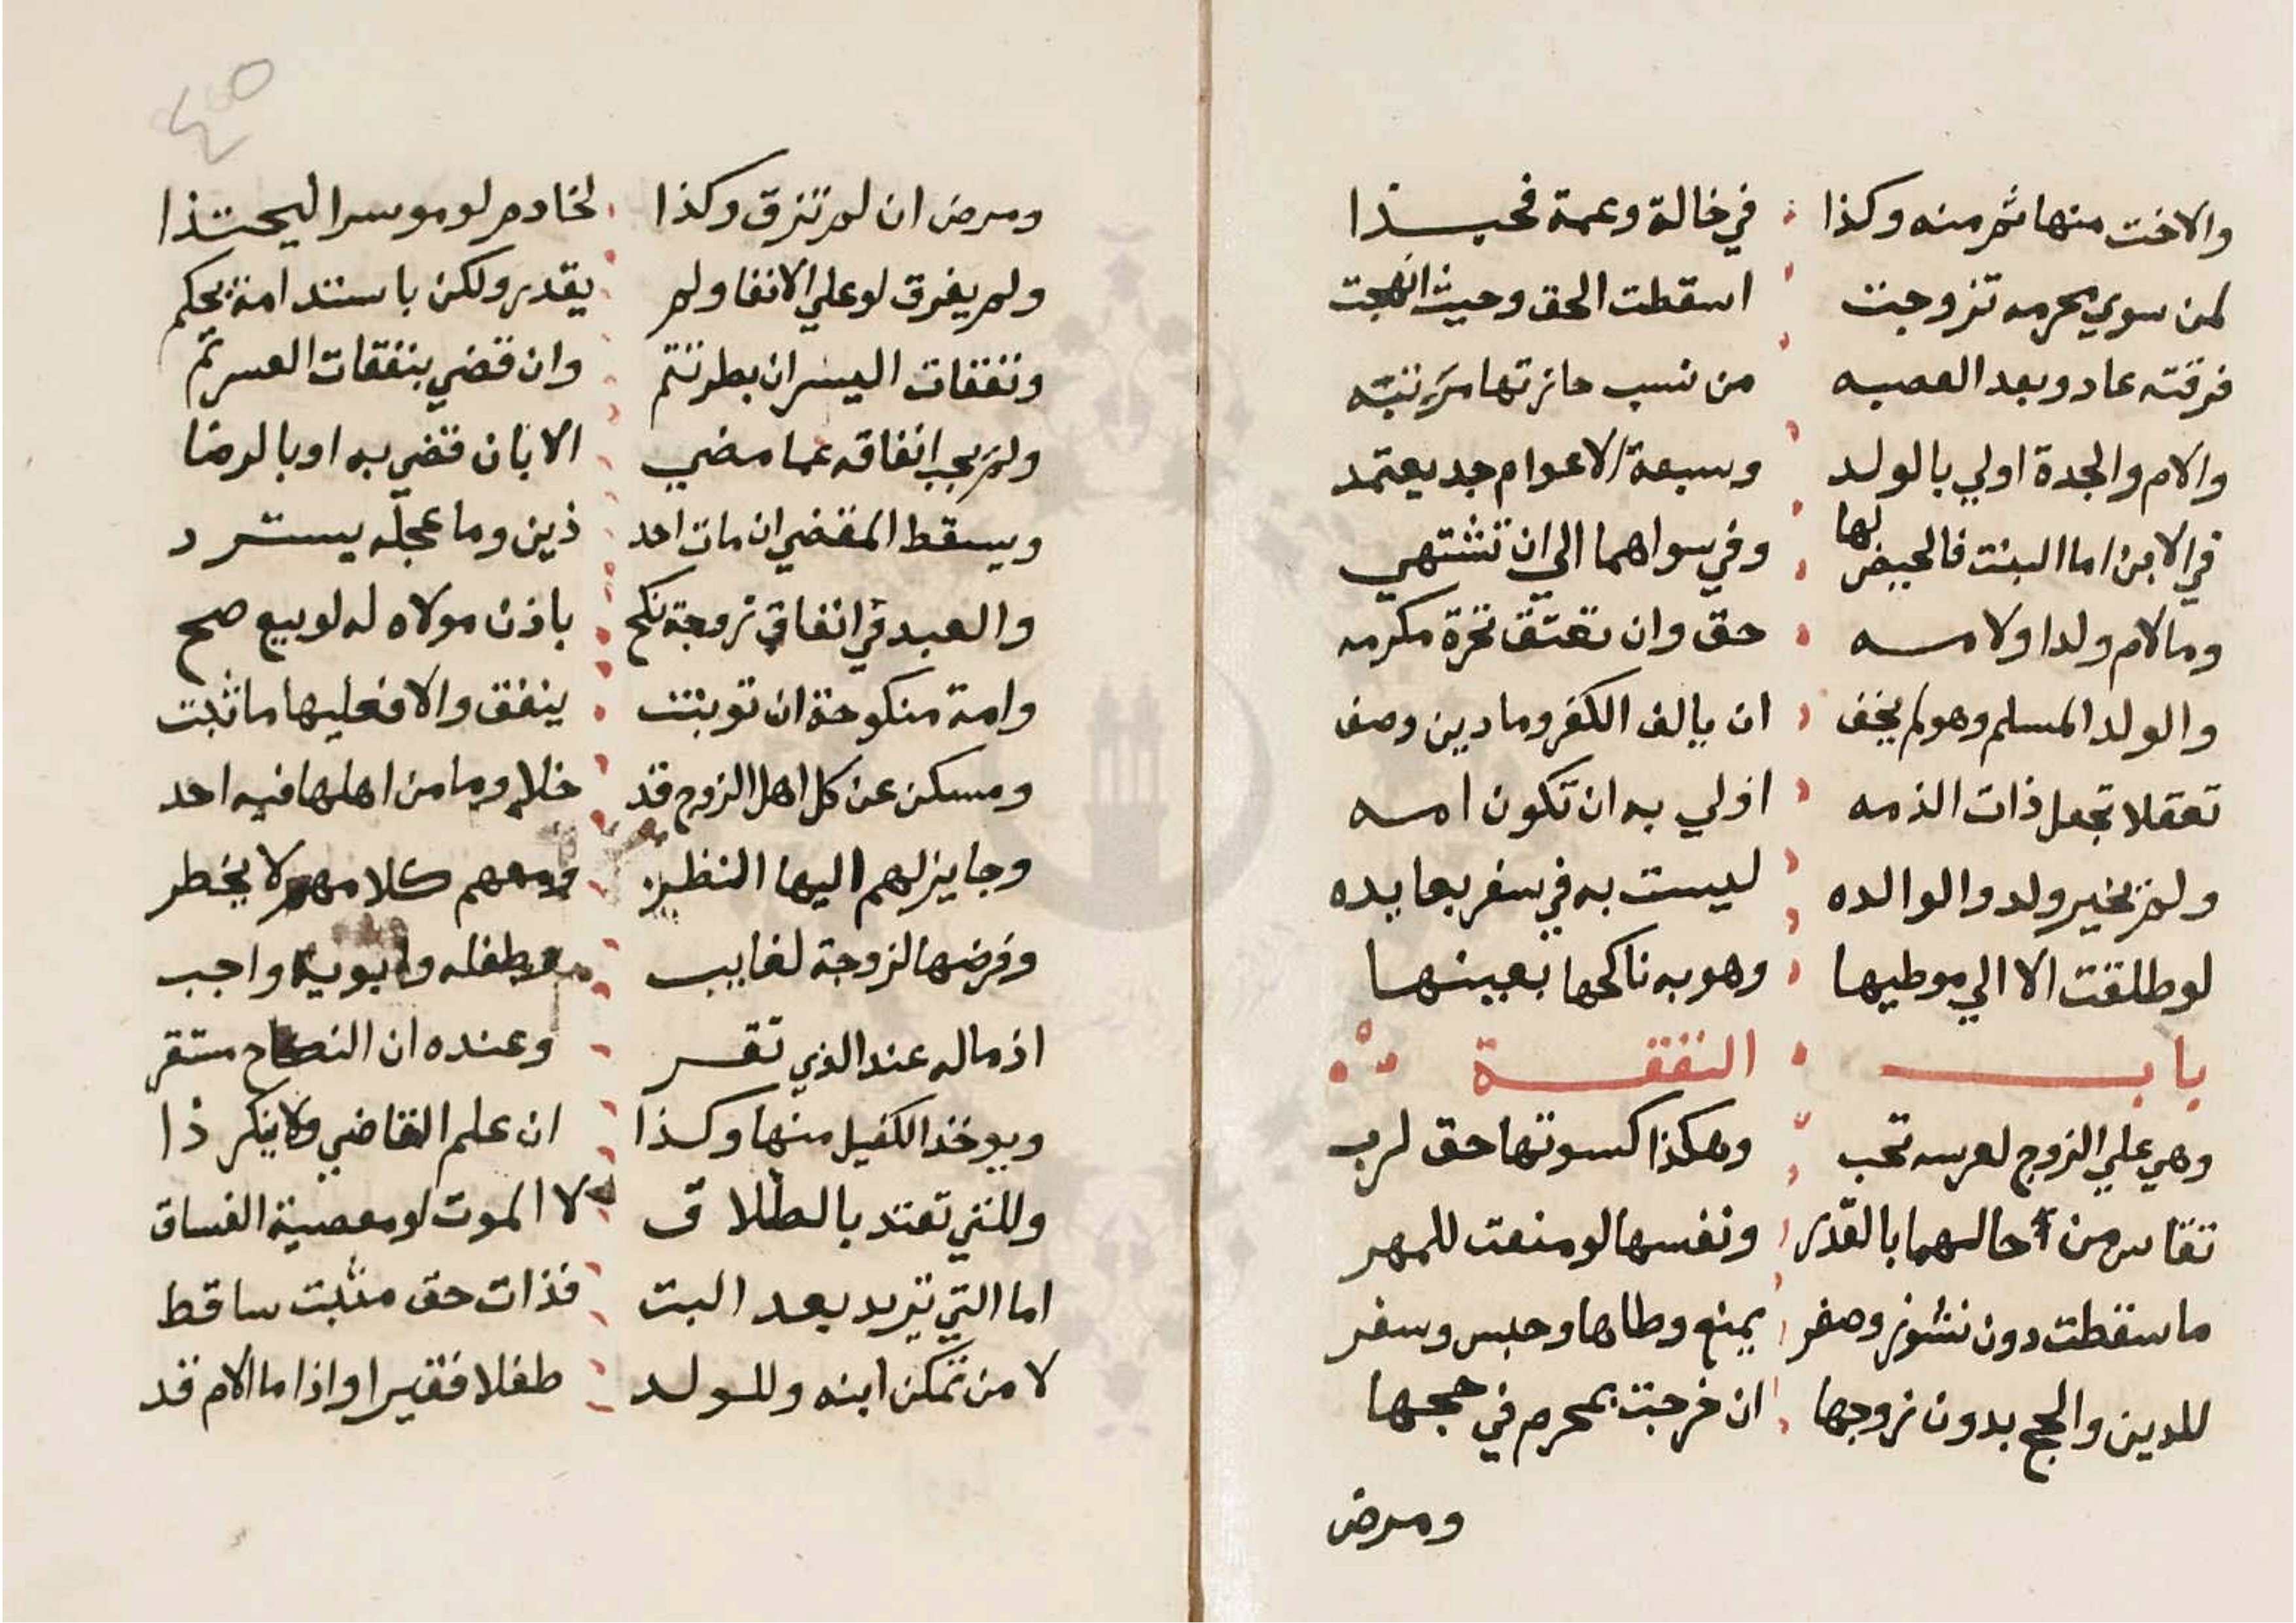 والاخت منها ثم منه وكذا في خالة وعمة فحبذا
لمن سوي محرمه تزوجت اسقطت الحق وحيث انهجت
فرقته عاد وبعد العصبه من نسب حازتها مرتبه
والام والجدة اولي بالولد وسبعة الاعوام جد يعتمد
في الابن اما البنت فالحيض لها وفي سواهما الي ان تشتهي
وما لام ولد او لامه حق وان تعتق تحرة مكرمه
والولد المسلم وهو لم يخف ان يالف الكفر وما دين وصف
تعقلا تجعل ذات الذمه اولي به ان تكون امه
ولم تخير ولد والوالده ليست به في سفر بعايده
لو طلقت الا الي موطيها وهو به ناكحها بعينها
باب النفقة
وهي علي الزوج لعرسه تجب وهكذا كسوتها حق لرب
تقاس من حاليهما بالقدر ونفسها لو منعت للمهر
ما سقطت دون نشوز وصغر يمنع وطاها وحبس وسفر
للدين والحج بدون زوجها ان خرجت بمحرم في حجها
ومرض
٤٥
ومرض ان لم تزق وكذا لخادم لو موسرا ليحتذا
ولم يفرق لو علي الانفا ولم يقدر ولكن باستدامة يحكم
ونفقات اليسر ان يطر تتم وان قضي بنفقات العسر ثم
ولم يجب انفاقه عما مضي الا بان قضي به او بالرضا
ويسقط المقضي ان مات احد ذين وما عجله يسترد
والعبد في انفاق زوجة نكح باذن مولاه له لو بيع صح
وامة منكوحة ان توبثت ينفق والا فعليها ما ثبت
ومسكن عن كل اهل الزوج قد خلا وما من اهلها فيه احد
وجايز لهم اليها النظر ومعهم كلامهم لا يحظر
وفرضها لزوجة لغايب وطفله وابويه واجب
اذ ماله عند الذي تقر وعنده ان النكاح مستقر
ويوخذ الكفيل منها وكذا ان علم القاضي ولا ينكر ذا
وللتي تعتد بالطلاق لا الموت لو معصية الفساق
اما التي تريد بعد البت فذات حق مثبت ساقط
لا من تمكن ابنه وللولد طفلا فقيرا واذا ما الام قد